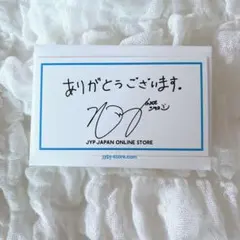 ありがとうございます。
JYP JAPAN ONLINE STORE
jypj-store.com